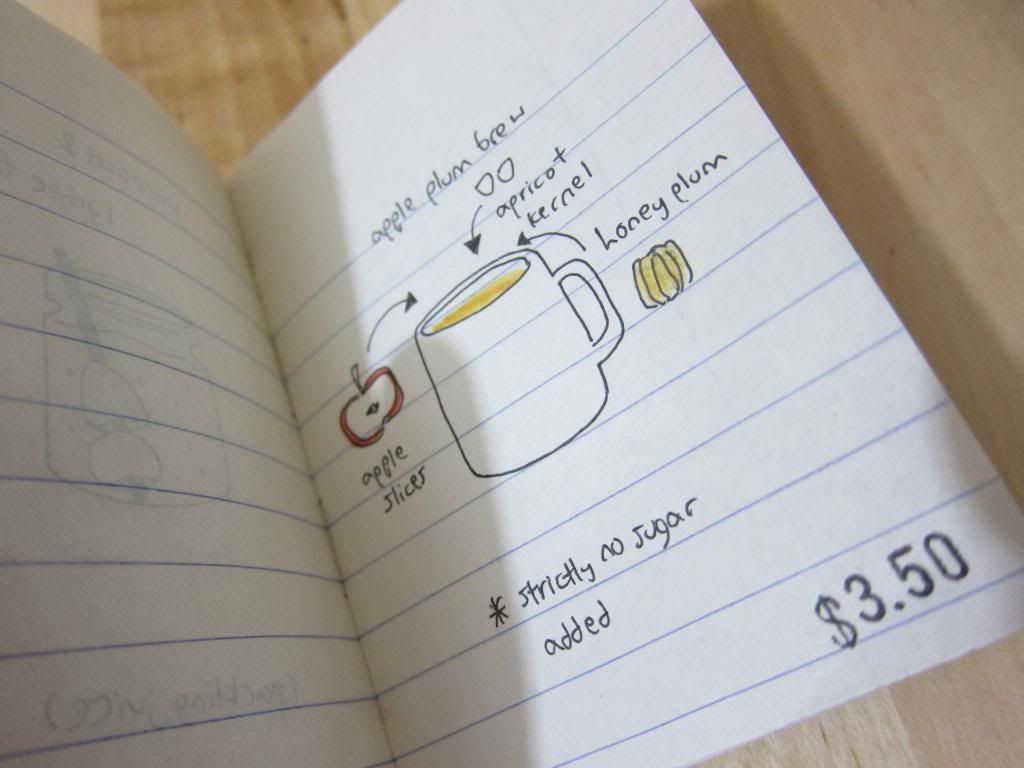 apple plum brew
apricot
kernel
honey plum
apple
slices
* strictly no sugar
added
$3.50